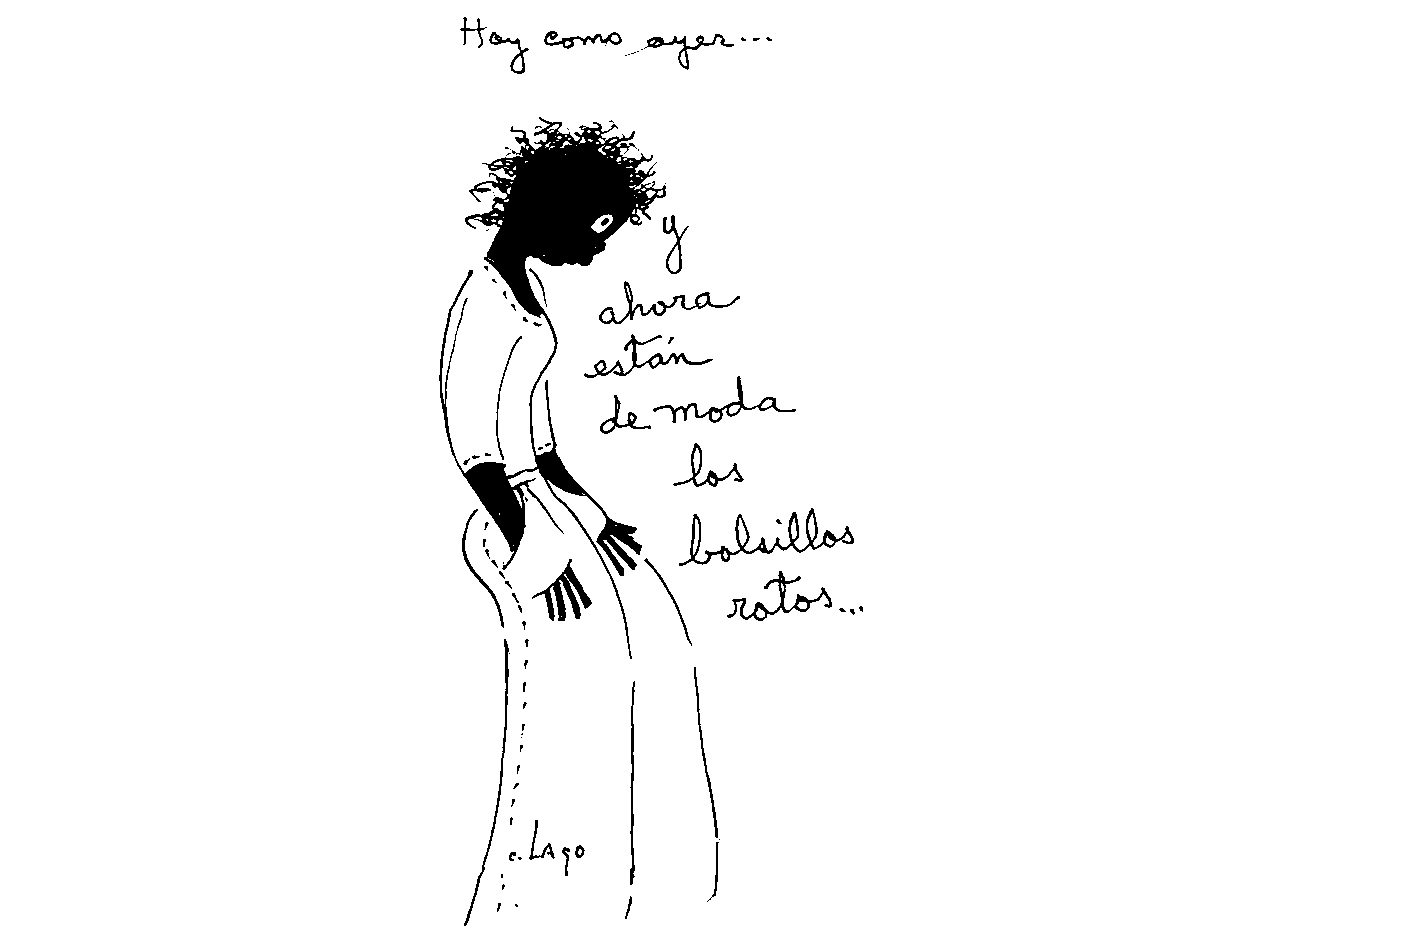 Hoy como ayer...
y
ahora
están
de moda
los
bolsillos
rotos...
c. LAgo